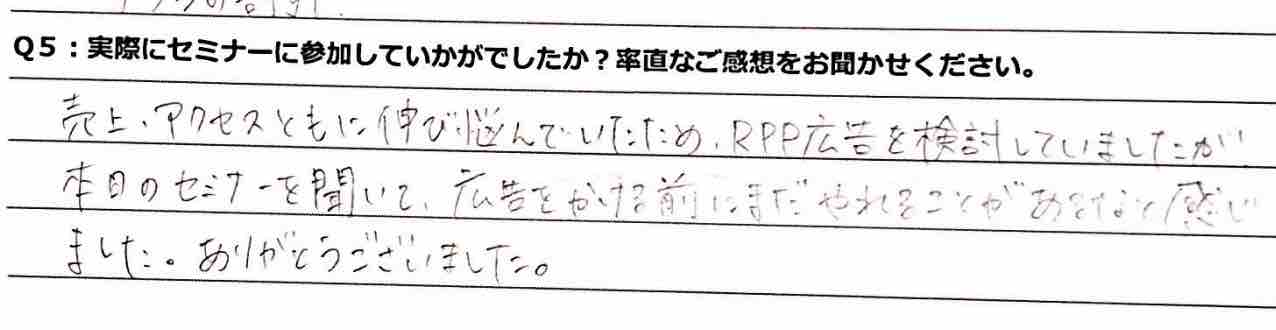 Q5：実際にセミナーに参加していかがでしたか？率直なご感想をお聞かせください。
売上、アクセスともに伸び悩んでいたため、RPP広告を検討していましたが
本日のセミナーを聞いて、広告をかける前にまだやれることがあるなと感じ
ました。ありがとうございました。